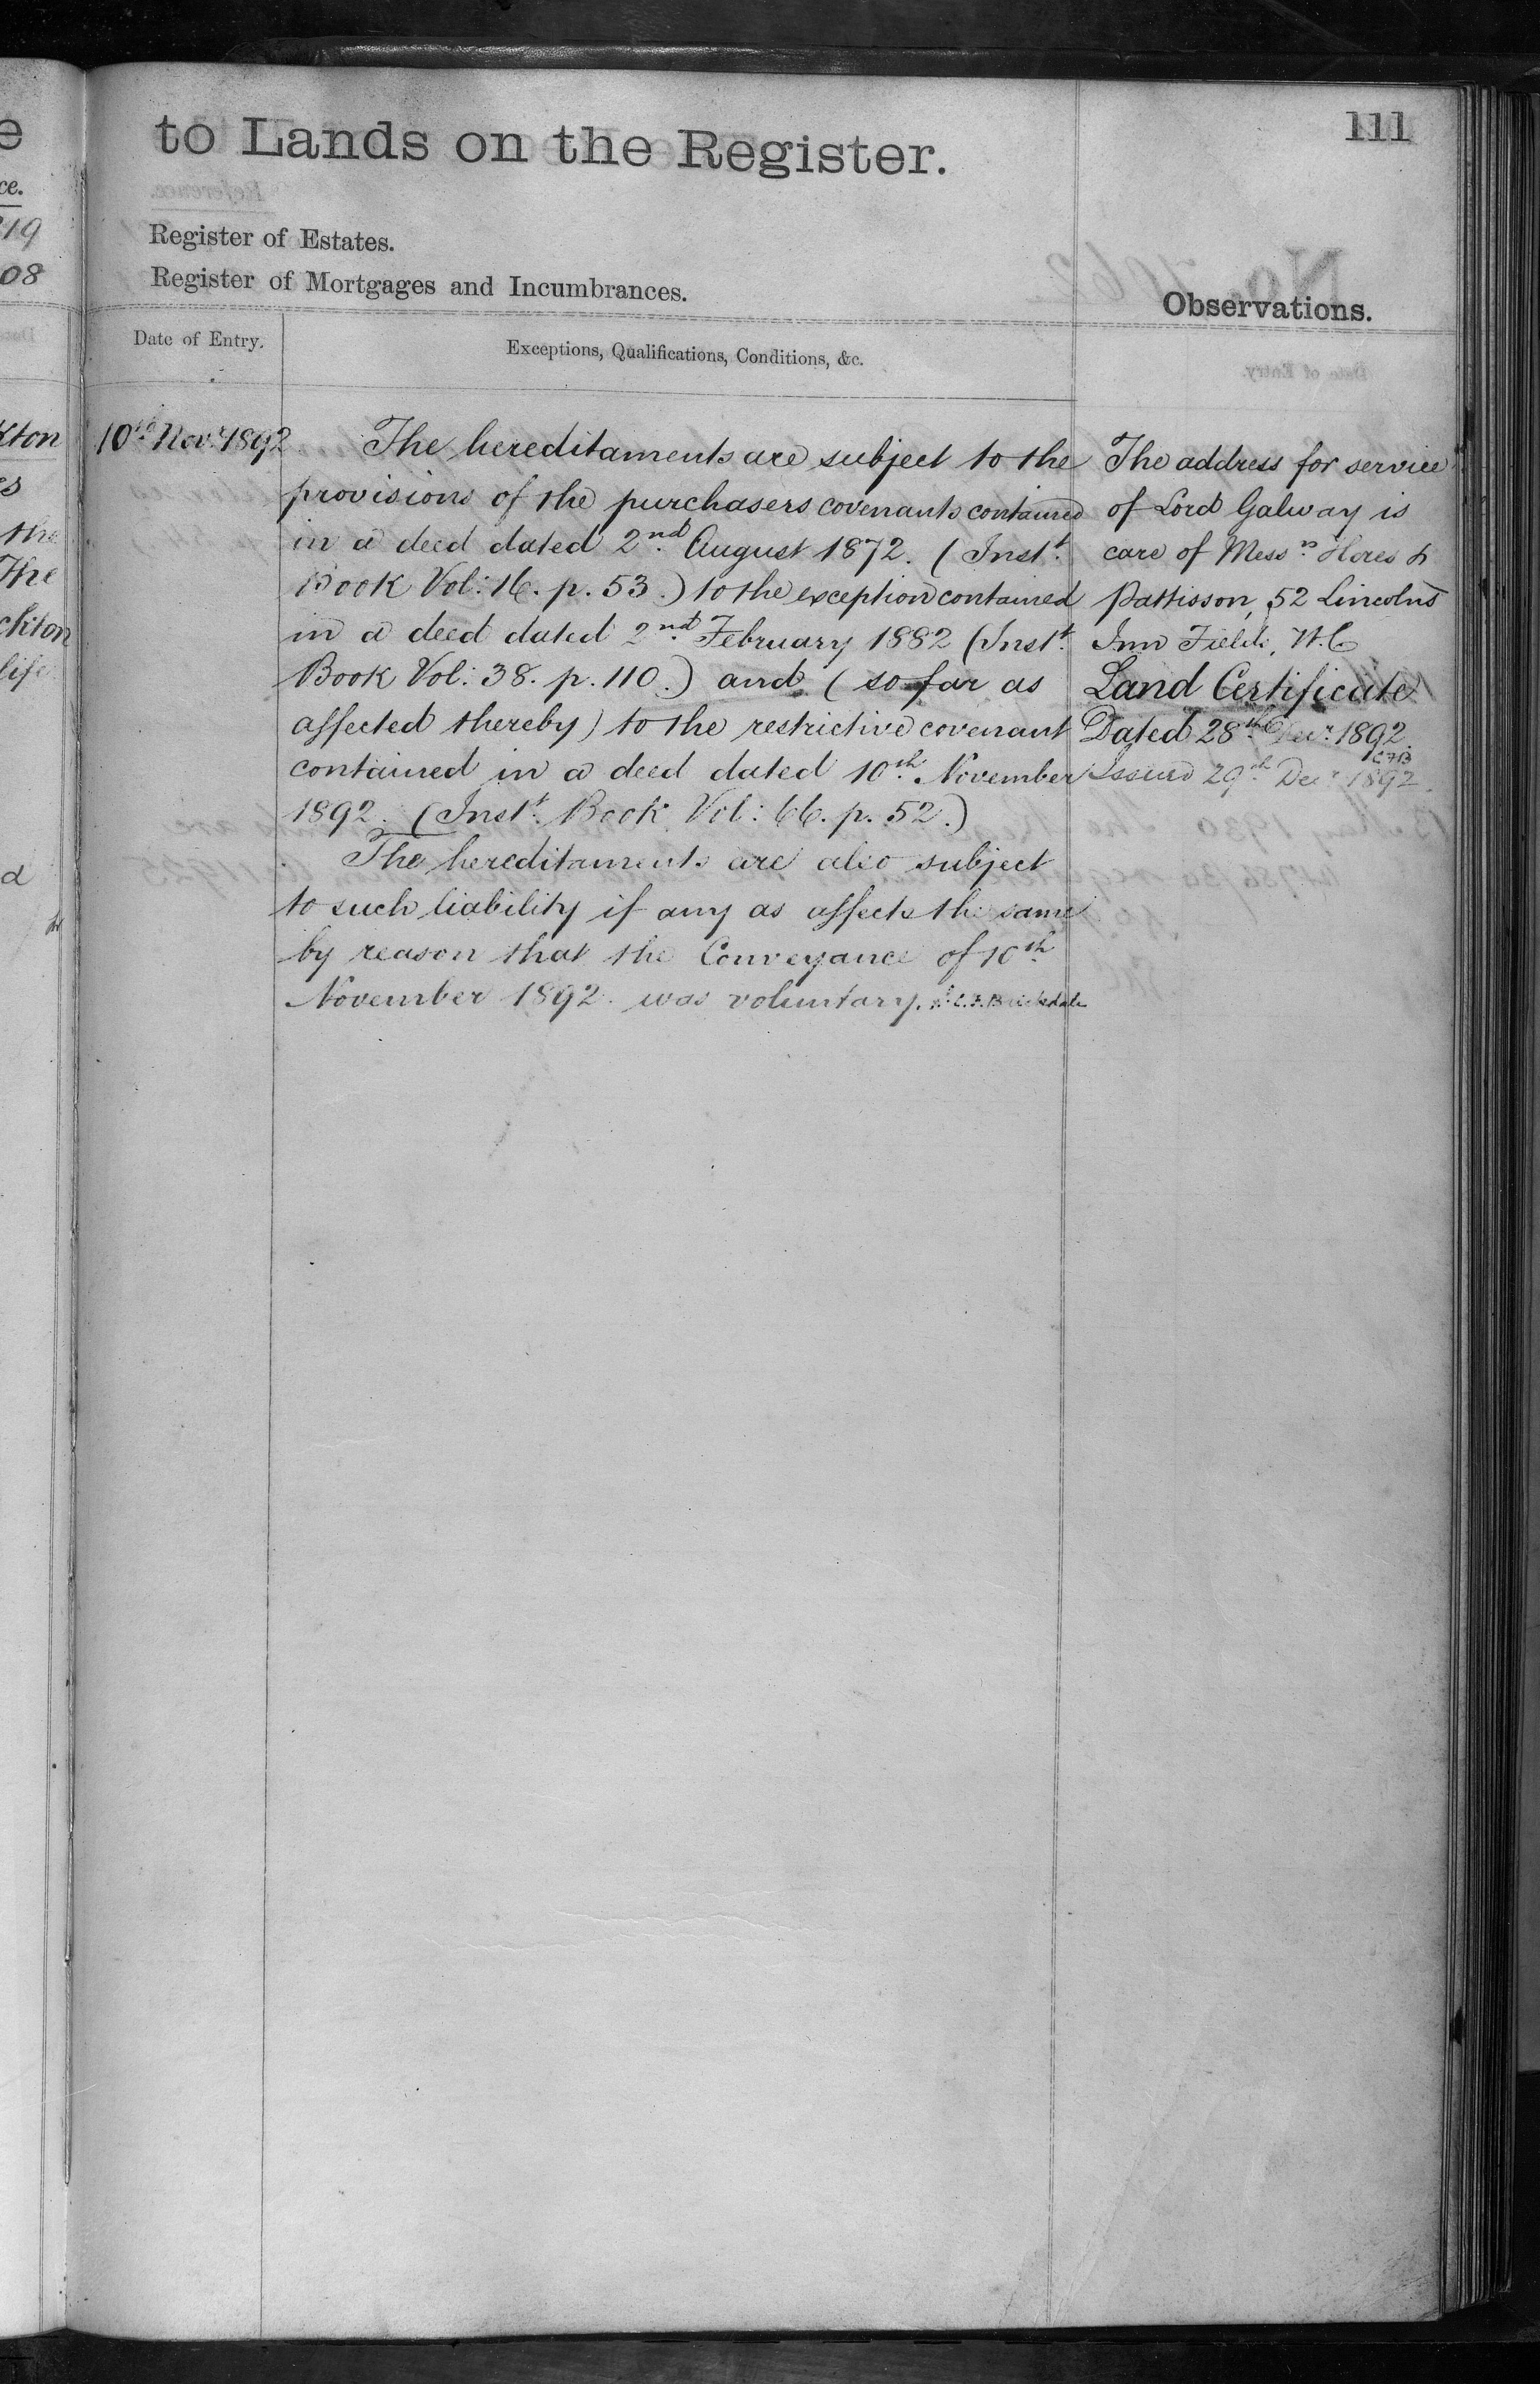 to Lands on the Register.
111
Register of Estates.
Register of Mortgages and Incumbrances.
Observations.
Date of Entry.
Exceptions, Qualifications, Conditions, &c.
10th Novr. 1892
The hereditaments are subject to the
provisions of the purchasers covenants contained
in a deed dated 2nd August 1872. (Instt.
Book Vol: 16. p. 53.) to the exception contained
in a deed dated 2nd February 1882 (Instt.
Book Vol: 38. p. 110.) and (so far as
affected thereby) to the restrictive covenant
contained in a deed dated 10th November
1892. (Instt. Book Vol: 66. p. 52.)
The hereditaments are also subject
to such liability if any as affects the same
by reason that the Conveyance of 10th
November 1892 was voluntary. C.F. Brickdale
The address for service
of Lord Galway is
care of Messrs Hores &
Pattisson, 52 Lincoln's
Inn Fields, W.C
Land Certificate
Dated 28th Decr. 1892
CFB
Issued 29th Decr 1892.
ce.
19
08
kton
the
The
ckton
life